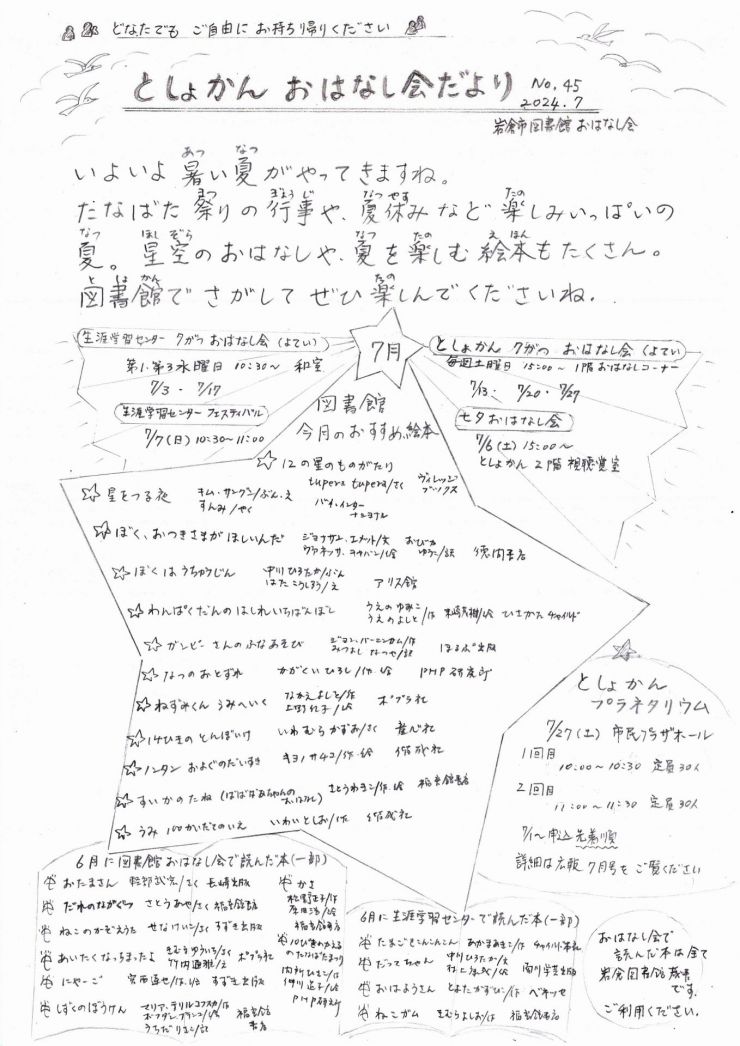 どなたでも ご自由に お持ち帰りください
としょかん おはなし会だより
No.45
2024.7
岩倉市図書館 おはなし会
いよいよ 暑い夏がやってきますね。
たなばた祭りの行事や、夏休みなど楽しみいっぱいの
夏。星空のおはなしや、夏を楽しむ絵本もたくさん。
図書館でさがしてぜひ楽しんでくださいね。
7月
生涯学習センター 7がつ おはなし会 (よてい)
第1.第3水曜日 10:30〜 和室
7/3 ・ 7/17
生涯学習センター フェスティバル
7/7(日) 10:30〜11:00
としょかん 7がつ おはなし会 (よてい)
毎週土曜日 15:00〜 1階おはなしコーナー
7/13 ・ 7/20 ・ 7/27
七夕おはなし会
7/6(土) 15:00〜
としょかん 2階 視聴覚室
図書館
今月のおすすめ絵本
12の星のものがたり tupera tupera/さく ヴィレッジブックス
星をつる夜 キム・サングン/ぶん・え すんみ/やく パイ・インターナショナル
ぼく、おつきさまがほしいんだ ジョナサン・エメット/文 ヴァネッサ・キャバン/絵 おびか ゆうこ/訳 徳間書店
ぼくはうちゅうじん 中川ひろたか/ぶん はた こうしろう/え アリス館
わんぱくだんのはしれいちばんぼし うえの ゆみこ うえの よしと/作 末崎茂樹/絵 ひさかたチャイルド
ガンピーさんのふなあそび ジョン・バーニンガム/作 みつよし なつや/訳 ほるぷ出版
なつのおとずれ かがくいひろし/作・絵 PHP研究所
ねずみくん うみへいく なかえよしを/作 上野紀子/絵 ポプラ社
14ひきのとんぼいけ いわむらかずお/さく 童心社
ノンタン およぐのだいすき キヨノサチコ/作・絵 偕成社
すいかのたね (ばばばあちゃんのおはなし) さとうわきこ/作・絵 福音館書店
うみ 100かいだてのいえ いわいとしお/作 偕成社
としょかん
プラネタリウム
7/27(土) 市民プラザホール
1回目
10:00〜10:30 定員30人
2回目
11:00〜11:30 定員30人
7/1〜申込 先着順
詳細は広報 7月号をご覧ください
6月に図書館おはなし会で読んだ本(一部)
おたまさん /さく 長崎出版
だれのながぐつ さとうあや/さく 福音館書店
ねこのかぞえうた せなけいこ/さく すずき出版
あいたくなっちまったよ きむらゆういち/さく 竹内通雅/え ポプラ社
にゃーご 宮西達也/作・絵 すずき出版
しずくのぼうけん マリア・テルリコフスカ/作 ボフダン・ブテンコ/絵 うちだりさこ/訳 福音館書店
かさ 松野正子/作 原田治/絵 福音館書店
10ぴきのかえるのたなばたまつり 間所ひさこ/作 仲川道子/絵 PHP研究所
6月に生涯学習センターで読んだ本(一部)
たまごとんとんとん あかま あきこ/作 チャイルド本社
だってちゃん 中川ひろたか/文 村上康成/絵
おはようさん とよたかずひこ/作 ベネッセ
ねこガム きむらよしお/作 福音館書店
おはなし会で
読んだ本は全て
岩倉図書館蔵書
です。
ご利用ください。